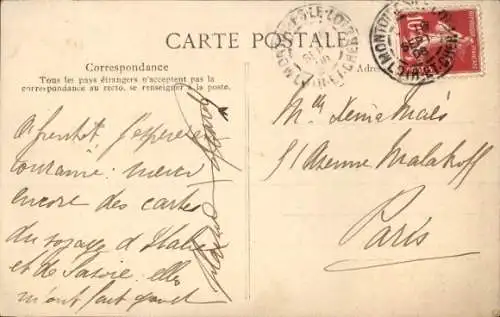 CARTE POSTALE
Correspondance
Tous les pays étrangers n'acceptent pas la
correspondance au recto, se renseigner à la poste.
Adres
A bientôt, j'espère en
touraine; merci
encore des cartes
du voyage d'Italie
et de Savoie. elles
m'ont fait grand
Mlle Malès
51 Avenue Malakoff
Paris
10
MONTOIRE-S-LE-LOIR
LOIR-ET-CHER